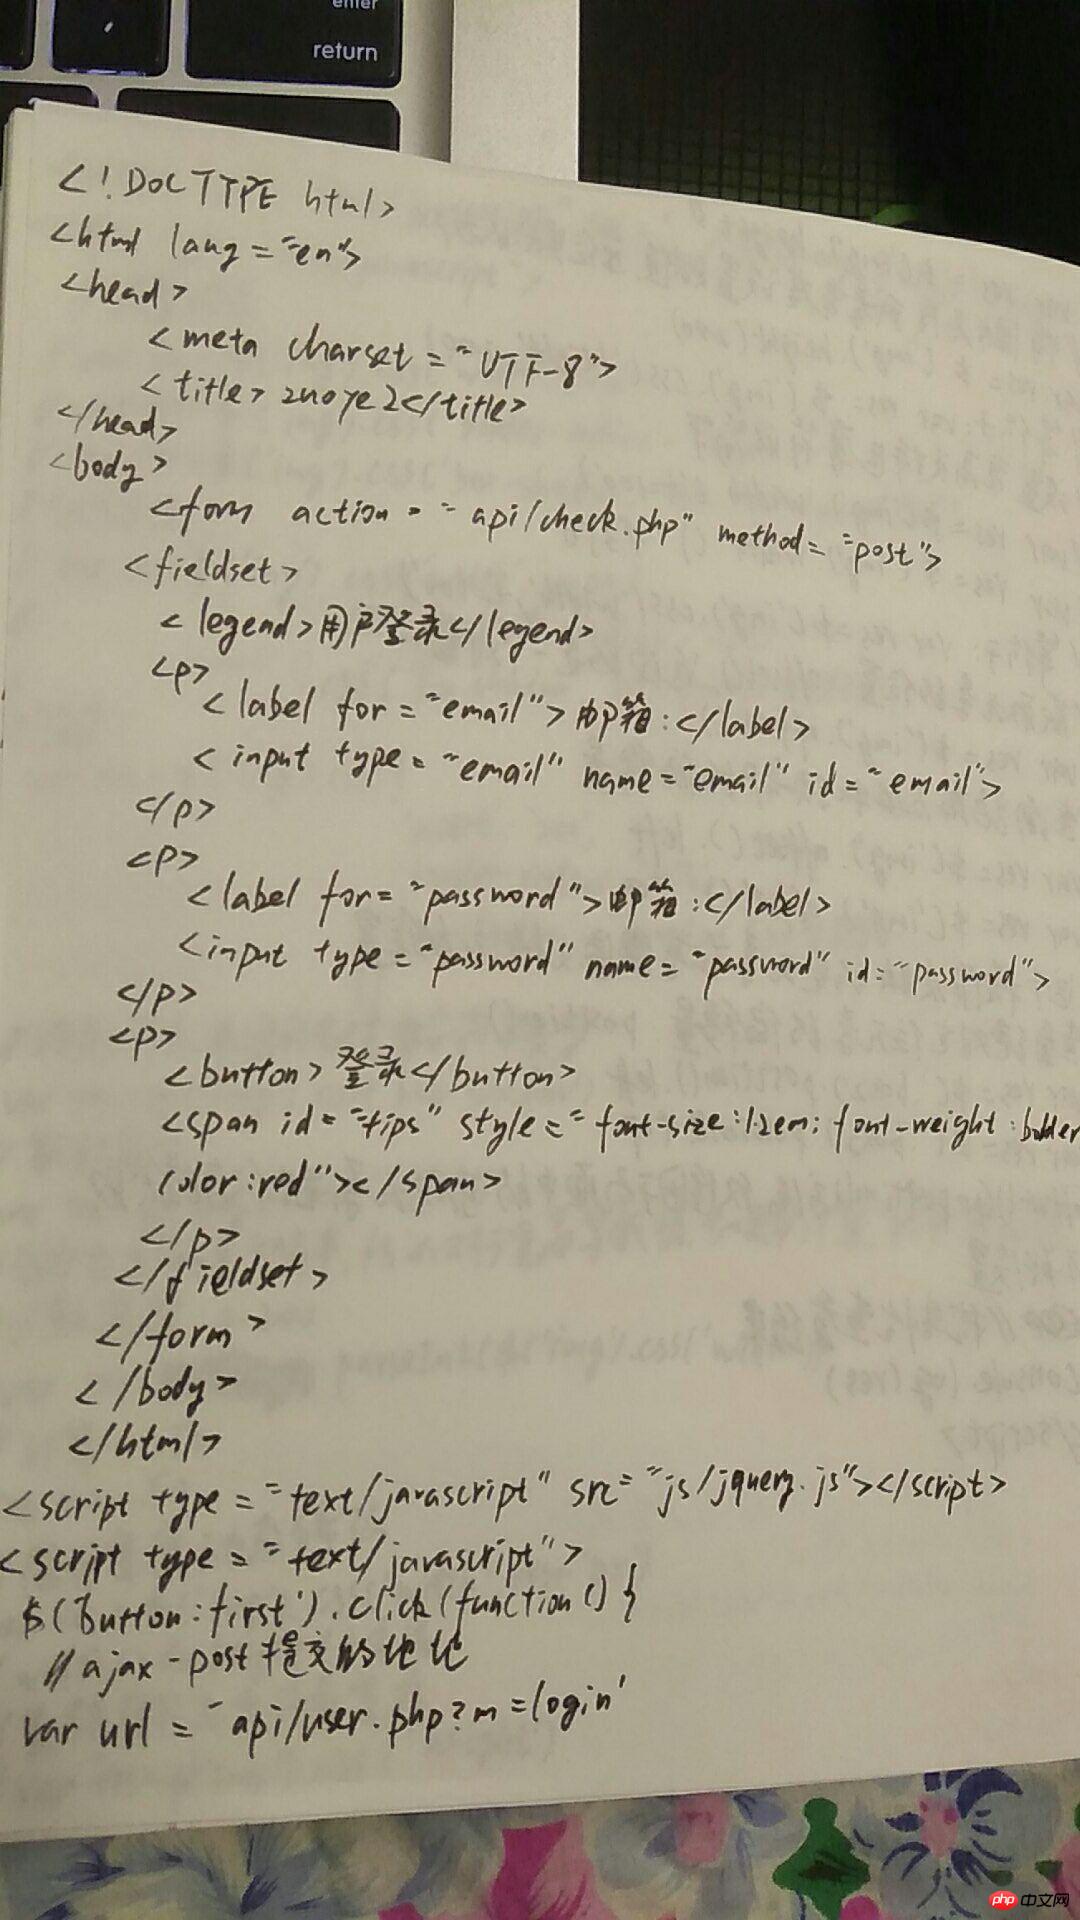 enter
return
<!DOCTYPE html>
<html lang="en">
<head>
<meta charset="UTF-8">
<title>zuoye2</title>
</head>
<body>
<form action="api/check.php" method="post">
<fieldset>
<legend>用户登录</legend>
<p>
<label for="email">邮箱:</label>
<input type="email" name="email" id="email">
</p>
<p>
<label for="password">邮箱:</label>
<input type="password" name="password" id="password">
</p>
<p>
<button>登录</button>
<span id="tips" style="font-size:1.2em; font-weight:bolder
color:red"></span>
</p>
</fieldset>
</form>
</body>
</html>
<script type="text/javascript" src="js/jquery.js"></script>
<script type="text/javascript">
$('button:first').click(function(){
//ajax-post提交的地址
var url = 'api/user.php?m=login'
php 中文网